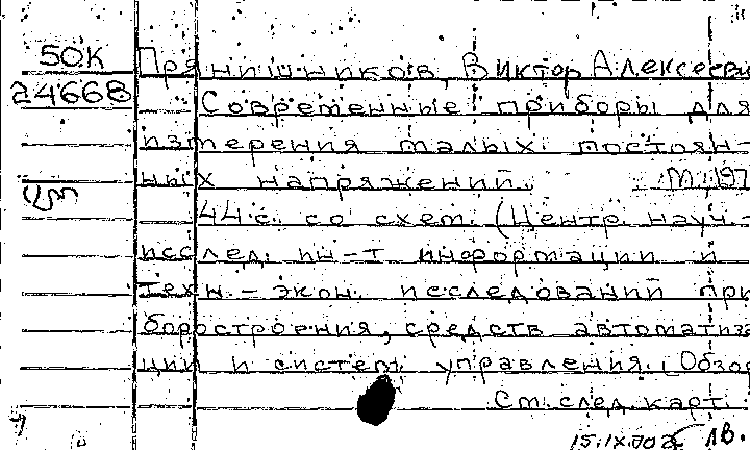 50К Прянишников, Виктор Алексееви
24668 Современные приборы для
измерения малых постоян-
ных напряжений. М. 197
44 с. со схем. (Центр. науч.-
исслед. ин-т информации и
техн.-экон. исследований при
боростроения, средств автоматиза
ции и систем управления. Обзо
См. след. карт.
15.IX.702 лв.